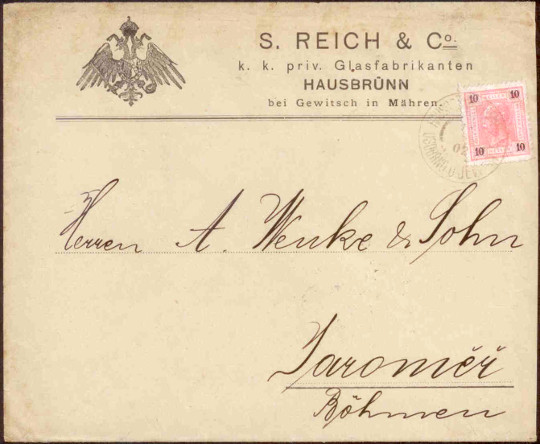 S. REICH & Co.
k. k. priv. Glasfabrikanten
HAUSBRÜNN
bei Gewitsch in Mähren.
10 10
10 10
Herren A. Wenke & Sohn
Jaroměř
Böhmen